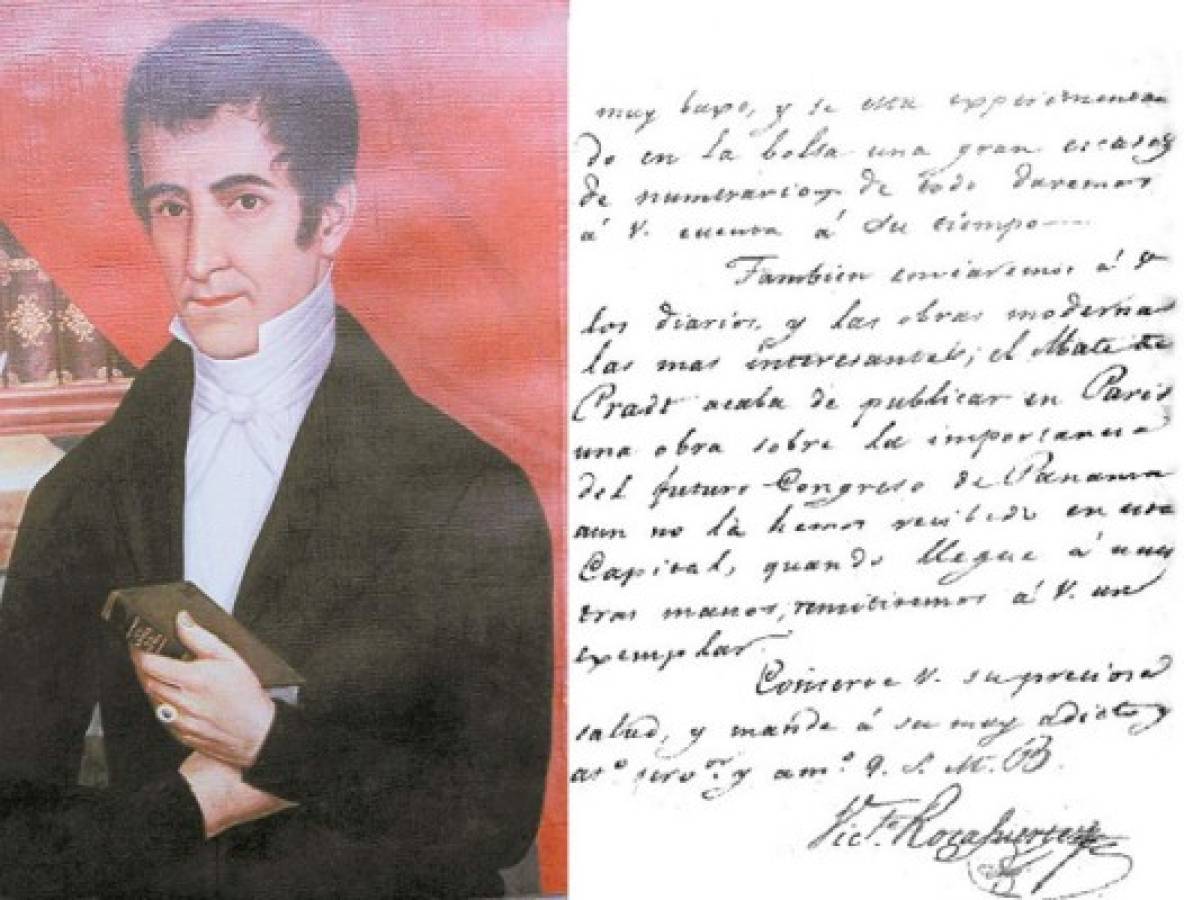 muy baxo, y se esta experimentan
do en la bolsa una gran escasez
de numerario, de todo daremos
á V. cuenta á su tiempo
Tambien enviaremos á V
los diarios, y las obras modernas
las mas interesantes; el Mr. de
Pradt acaba de publicar en Paris
una obra sobre la importancia
del futuro Congreso de Panama
aun no la hemos recibido en esta
Capital, quando llegue á nues
tras manos, remitiremos á V. un
exemplar.
Conserve V. su preciosa
salud, y mande á su muy adicto y
ato. servor. y amo. Q. S. M. B.
Victe. Rocafuerte